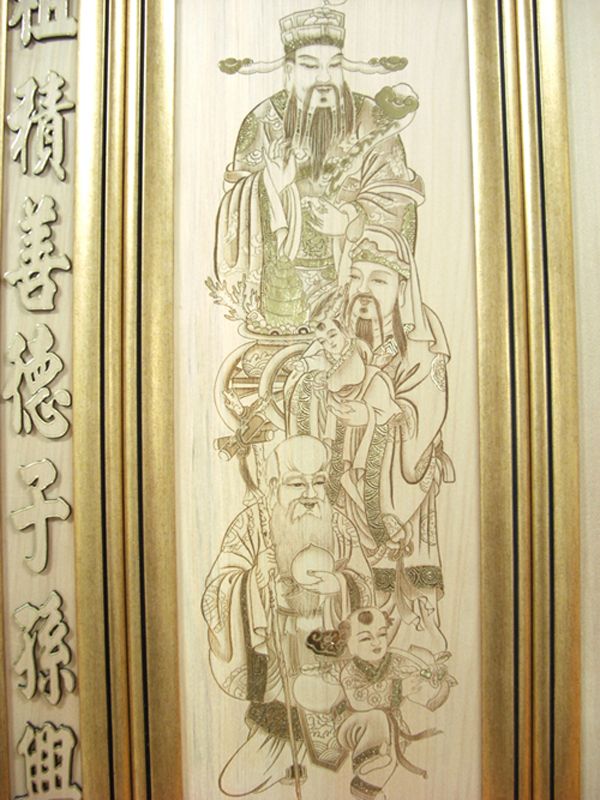 祖積善德子孫興